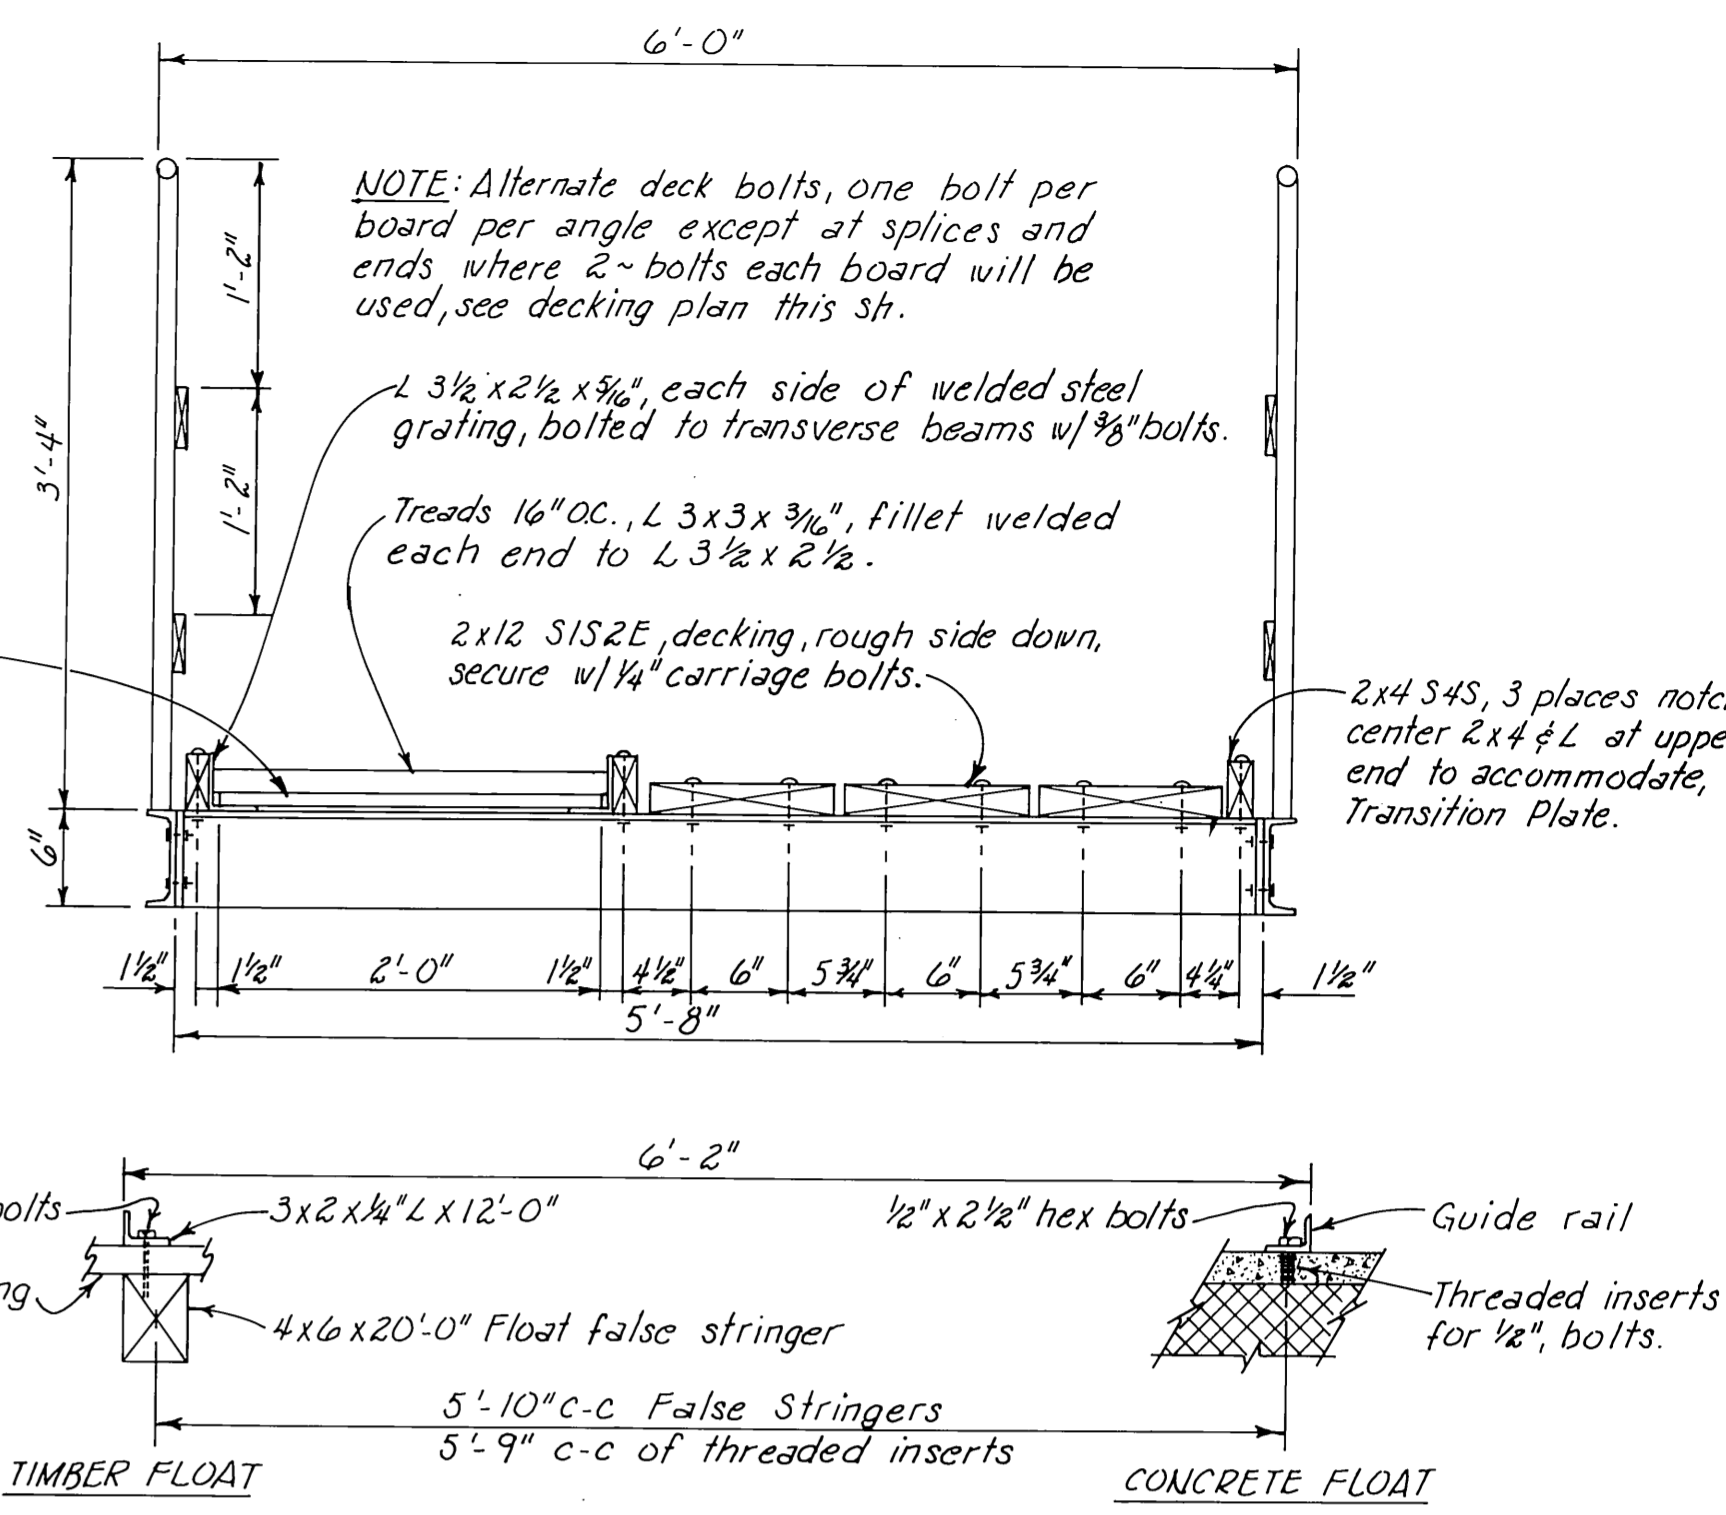 6'-0"
NOTE: Alternate deck bolts, one bolt per
board per angle except at splices and
ends where 2~ bolts each board will be
used, see decking plan this sh.
1'-2"
3'-4"
1'-2"
L 3½ x 2½ x 5/16", each side of welded steel
grating, bolted to transverse beams w/ 3/8" bolts.
Treads 16" O.C., L 3 x 3 x 3/16", fillet welded
each end to L 3½ x 2½.
2x12 S1S2E, decking, rough side down,
secure w/ ¼" carriage bolts.
2x4 S4S, 3 places notc
center 2x4 & L at uppe
end to accommodate,
Transition Plate.
6"
1½" 1½" 2'-0" 1½" 4½" 6" 5¾" 6" 5¾" 6" 4¼" 1½"
5'-8"
6'-2"
olts
3x2x¼" L x 12'-0"
½" x 2½" hex bolts
Guide rail
ng
4x6x20'-0" Float false stringer
Threaded inserts
for ½", bolts.
5'-10" C-C False Stringers
5'-9" c-c of threaded inserts
TIMBER FLOAT
CONCRETE FLOAT